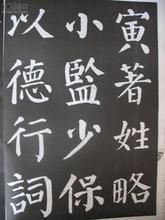 寅著姓略
小監少保
以德行詞